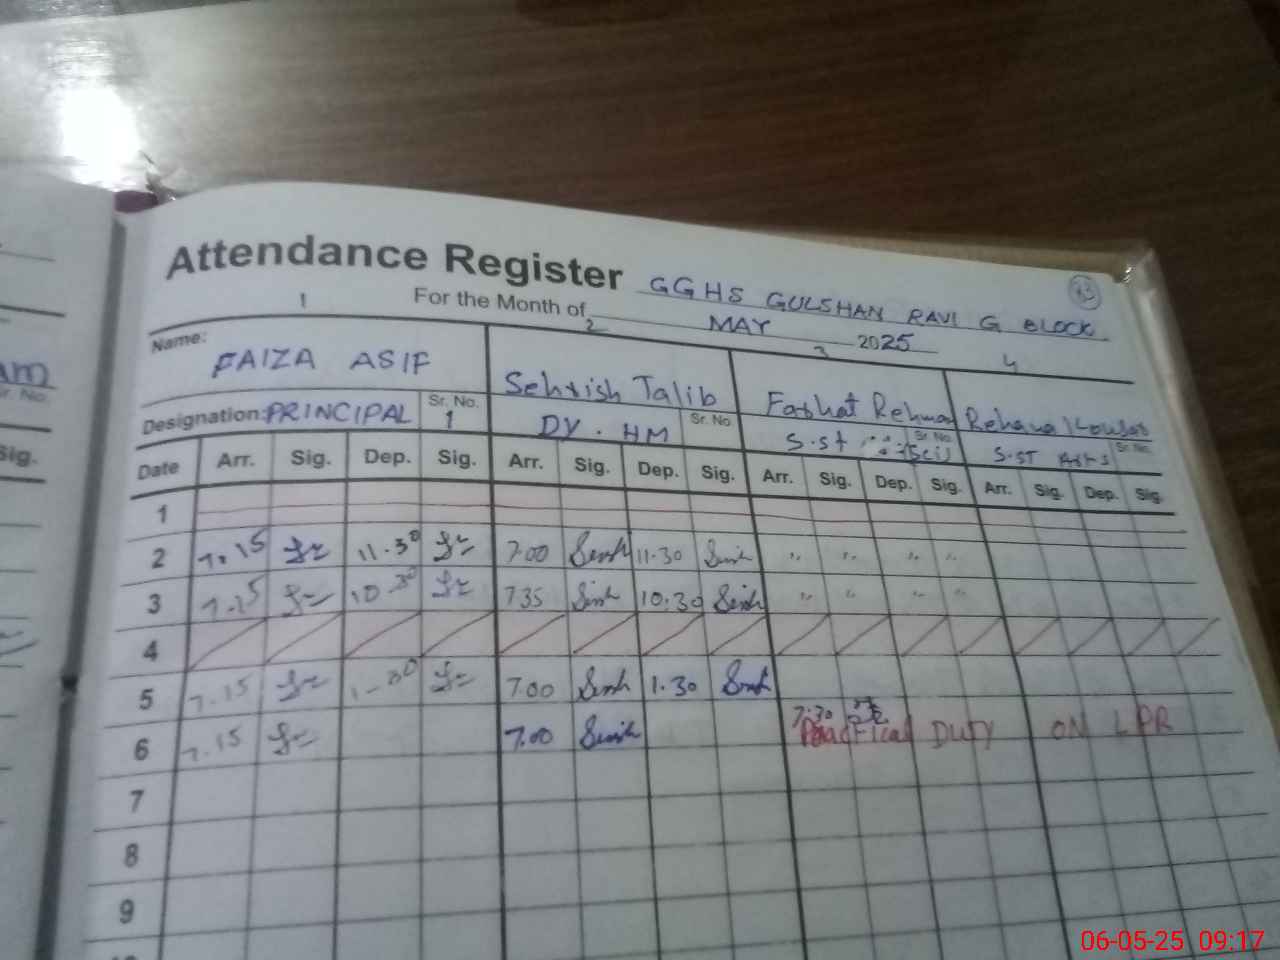 Attendance Register GGHS GULSHAN RAVI G BLOCK
83
For the Month of MAY 2025
1 2 3 4
Name: FAIZA ASIF Sehrish Talib Farhat Rehman Rehana Kousar
Designation: PRINCIPAL Sr. No. 1 DY. HM Sr. No S.st (Sci) Sr. No. S.ST Arts Sr. No.
Date Arr. Sig. Dep. Sig. Arr. Sig. Dep. Sig. Arr. Sig. Dep. Sig. Arr. Sig. Dep. Sig.
1
2 7.15 11.30 7.00 11.30 " " " "
3 7.15 10.30 735 10.30 " " " "
4
5 7.15 1-30 7.00 1.30
6 7.15 7.00 7:30 Practical DUTY ON LPR
7
8
9
am
Sr. No.
Sig.
06-05-25 09:17